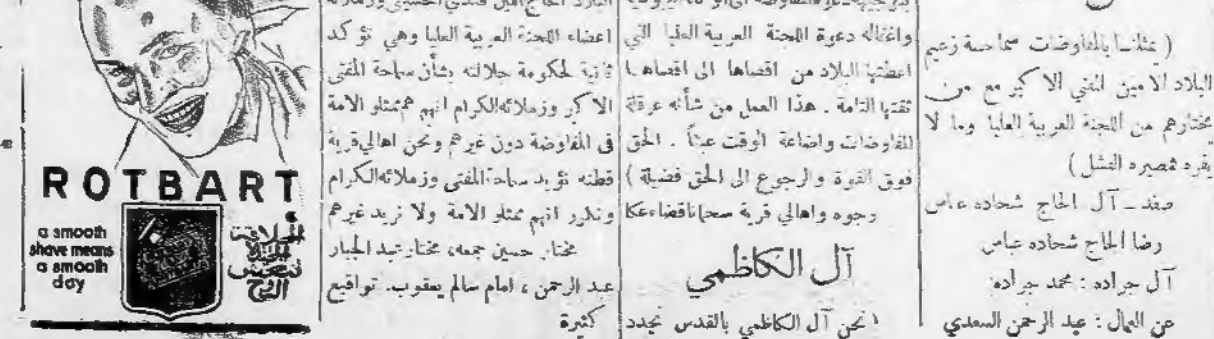 ( يمثلنا بالمفاوضات سماحة زعيم
البلاد الامين المفتي الاكبر مع من
يختارهم من اللجنة العربية العليا وما لا
يقره فمصيره الفشل )
صفد ـ آل الحاج شحاده عباس
رضا الحاج شحاده عباس
آل جراده : محمد جراده
عن العمال : عبد الرحمن السعدي
واغفاله دعوة اللجنة العربية العليا التي
اعطتها البلاد من اقصاها الى اقصاها
ثقتها التامة . هذا العمل من شأنه عرقلة
المفاوضات واضاعة الوقت عبثاً . الحق
فوق القوة والرجوع الى الحق فضيلة )
وجوه واهالي قرية سحماتا قضاء عكا
آل الكاظمي
نحن آل الكاظمي بالقدس نجدد
اعضاء اللجنة العربية العليا وهي تؤكد
ثانية لحكومة جلالته بشأن سماحة المفتي
الاكبر وزملائه الكرام انهم هم ممثلو الامة
في المفاوضة دون غيرهم ونحن اهالي قرية
قطنه نؤيد سماحة المفتي وزملائه الكرام
ونقرر انهم ممثلو الامة ولا نريد غيرهم
مختار حسين جمعه، مختار عبد الجبار
عبد الرحمن ، امام سالم يعقوب. تواقيع
كثيرة
ROTBART
a smooth
shave means
a smooth
day